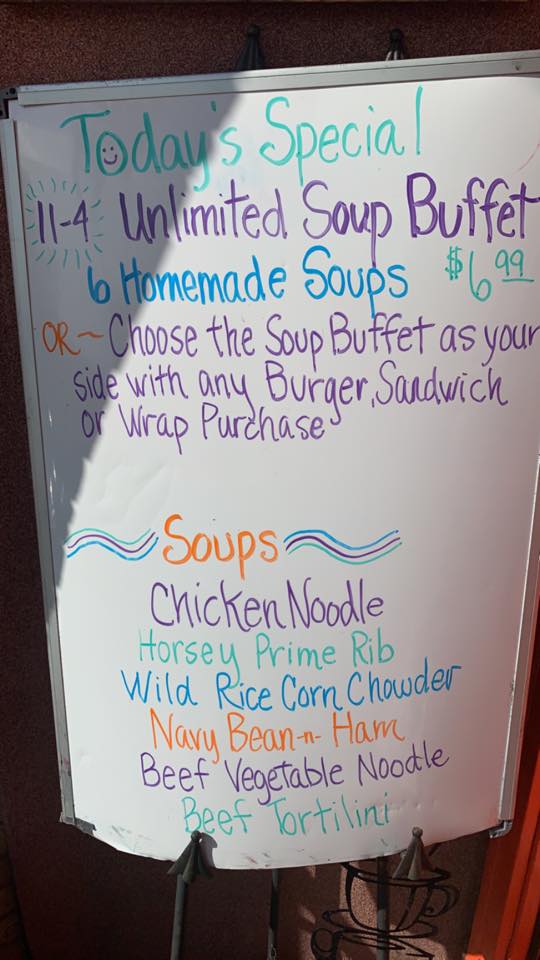 Today's Special
11-4 Unlimited Soup Buffet
6 Homemade Soups $6.99
OR ~ Choose the Soup Buffet as your
side with any Burger, Sandwich
or Wrap Purchase
Soups
Chicken Noodle
Horsey Prime Rib
Wild Rice Corn Chowder
Navy Bean-n-Ham
Beef Vegetable Noodle
Beef Tortilini